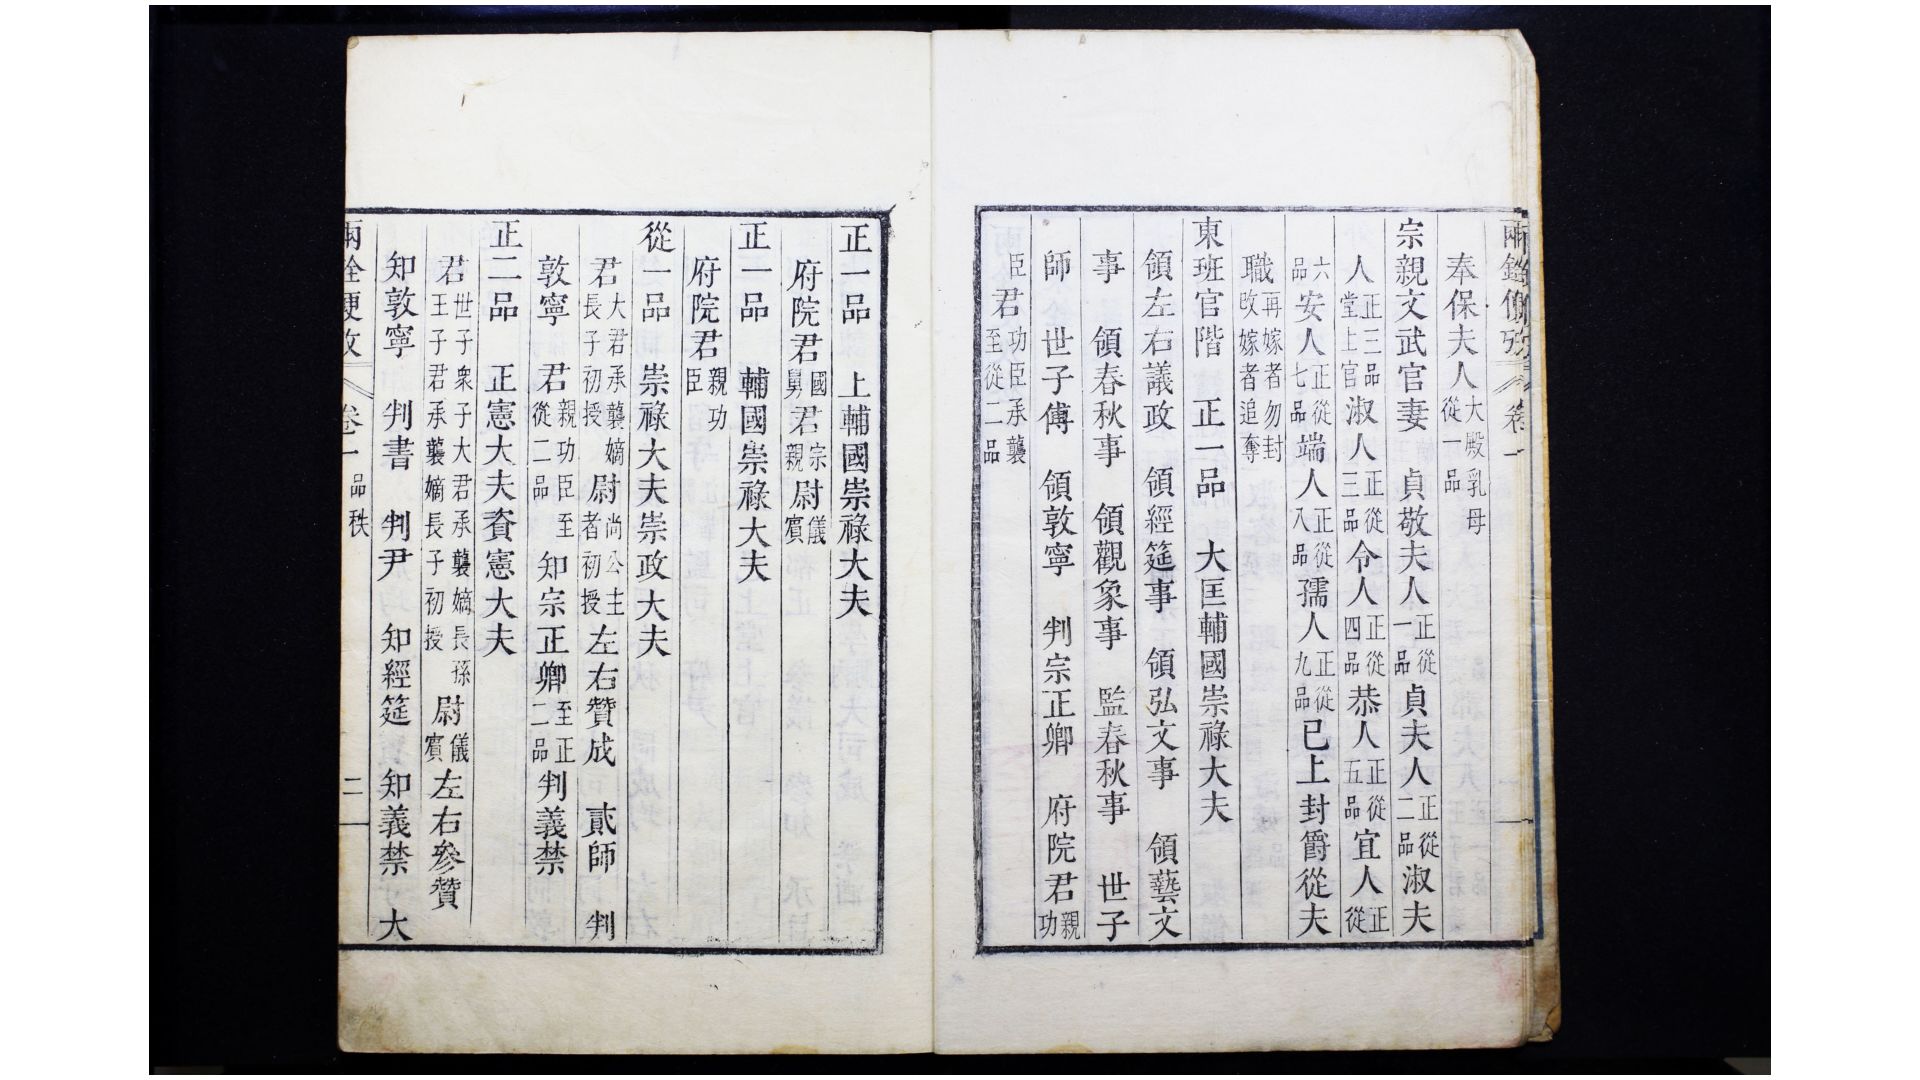 兩銓便攷 卷一
奉保夫人 大殿乳母從一品
宗親文武官妻 貞敬夫人 正從一品 貞夫人 正從二品 淑夫
人 正三品堂上官 淑人 正從三品 令人 正從四品 恭人 正從五品 宜人 正從
六品 安人 正從七品 端人 正從八品 孺人 正從九品 已上封爵從夫
職 再嫁者勿封改嫁者追奪
東班官階 正一品 大匡輔國崇祿大夫
領左右議政 領經筵事 領弘文事 領藝文
事 領春秋事 領觀象事 監春秋事 世子
師 世子傅 領敦寧 判宗正卿 府院君 親功
臣 君 功臣承襲至從二品
正一品 上輔國崇祿大夫
府院君 國舅 君 宗親 尉 儀賓
正一品 輔國崇祿大夫
府院君 親功臣
從一品 崇祿大夫崇政大夫
君 大君承襲嫡長子初授 尉 尚公主者初授 左右贊成 貳師 判
敦寧 君 親功臣至從二品 知宗正卿 至正二品 判義禁
正二品 正憲大夫資憲大夫
君 世子衆子大君承襲嫡長孫王子君承襲嫡長子初授 尉 儀賓 左右參贊
知敦寧 判書 判尹 知經筵 知義禁 大
兩銓便攷 卷一 品秩 二